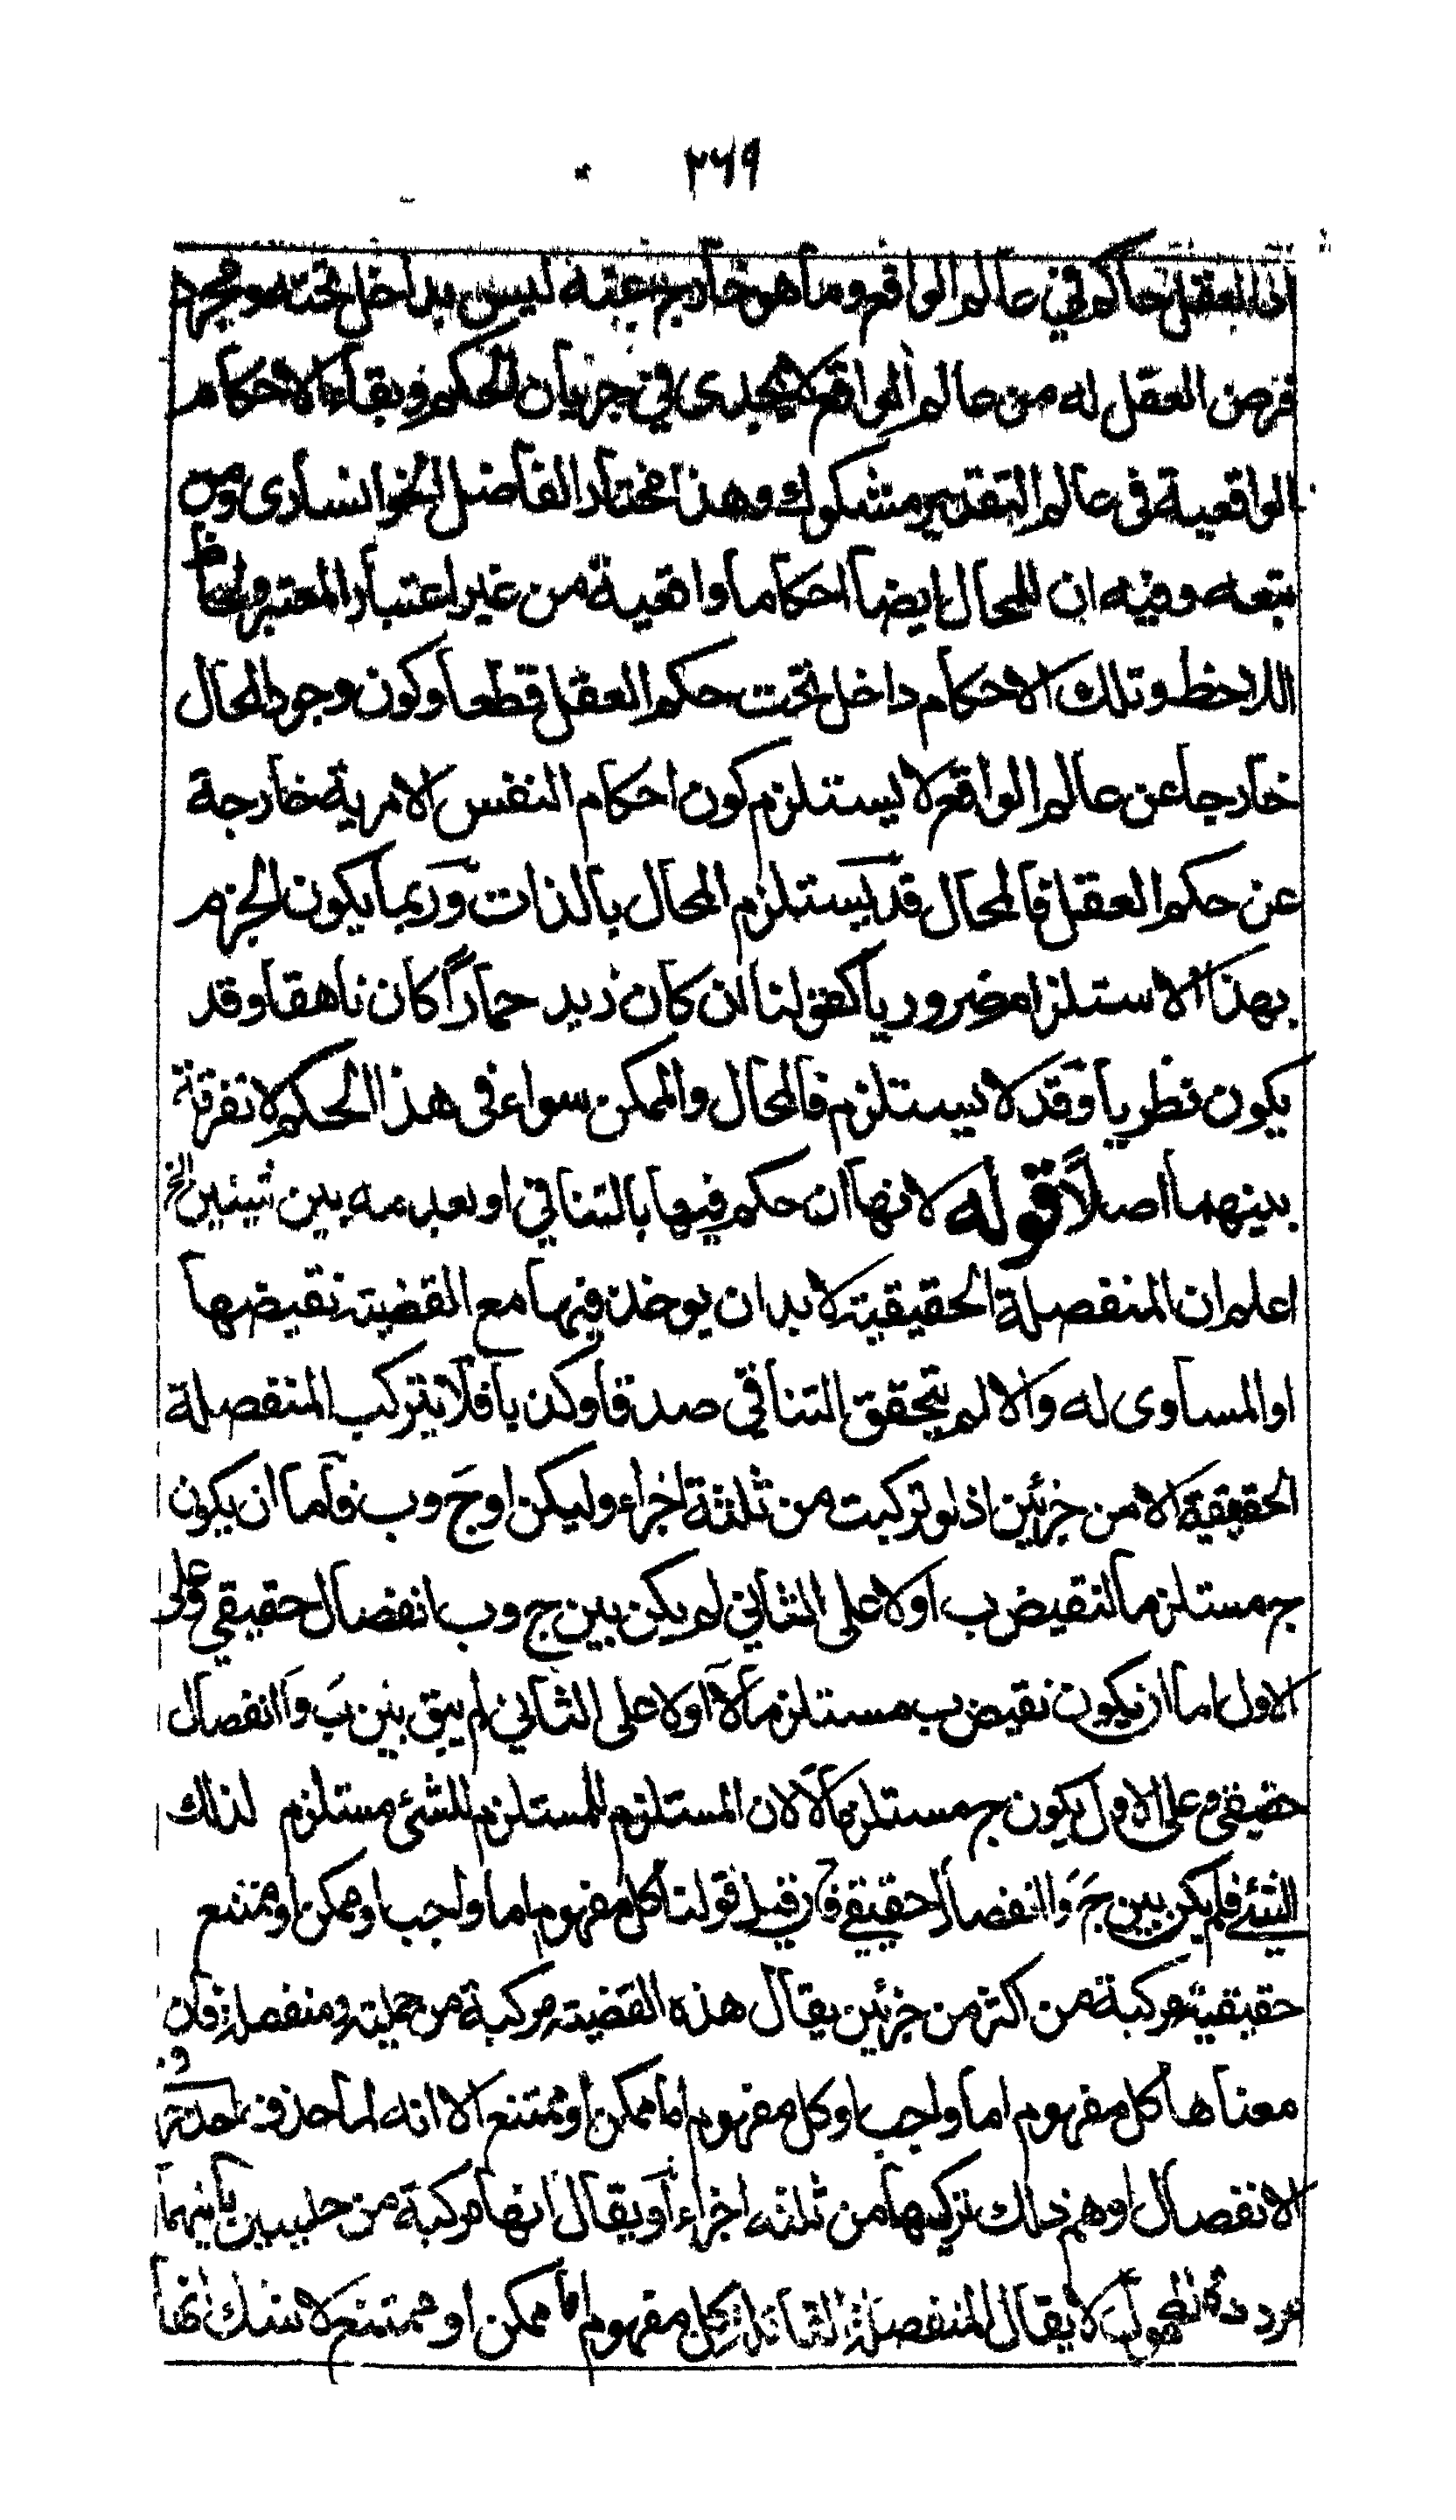 ٢٦٩
ان العقل حاكم في عالم الواقع وما هو خارج عنه ليس بداخل تحته ومجرد
فرض العقل له من عالم الواقع لا يجدى في جريان الحكم وبقاء الاحكام
الواقعية فى عالم التقدير مشكوك وهذا مختار الفاضل الخوانسارى ومن
تبعه وفيه ان للمحال ايضا احكاما واقعية من غير اعتبار المعتبر ولحاظ
اللاحظ وتلك الاحكام داخل تحت حكم العقل قطعا وكون وجود المحال
خارجا عن عالم الواقع لا يستلزم كون احكام النفس الامرية خارجة
عن حكم العقل فالمحال قد يستلزم المحال بالذات وربما يكون الجزم
بهذا الاستلزام ضروريا كقولنا ان كان زيد حمارا كان ناهقا وقد
يكون نظريا وقد لا يستلزم فالمحال والممكن سواء فى هذا الحكم لا تفرقة
بينهما اصلاً قوله لانها ان حكم فيها بالتنافي او بعدمه بين شيئين الخ
اعلم ان المنفصلة الحقيقية لا بد ان يوخذ فيها مع القضية نقيضها
او المساوى له والا لم يتحقق التنافي صدقا وكذبا فلا تتركب المنفصلة
الحقيقية الا من جزئين اذ لو تركبت من ثلثة اجزاء وليكن ا وج وب فاما ان يكون
ج مستلزما لنقيض ب او لا على الثاني لم يكن بين ج وب انفصال حقيقي وعلى
الاول اما ان يكون نقيض ب مستلزما لآ او لا على الثاني لم يبق بين ب وا انفصال
حقيقى وعلى الاول يكون ج مستلزما لآ لان المستلزم للمستلزم للشئ مستلزم لذلك
الشئ فلم يكن بين ج وا انفصال حقيقي فان قيل قولنا كل مفهوم اما واجب او ممكن او ممتنع
حقيقية مركبة من اكثر من جزئين يقال هذه القضية مركبة من حملية ومنفصلة فان
معناها كل مفهوم اما واجب او كل مفهوم اما ممكن او ممتنع الا انه لما حذف احد حرفي
الانفصال اوهم ذلك تركيبها من ثلثه اجزاء او يقال انها مركبة من حمليتين ثانيهما
مرددة المحمول لا يقال المنفصلة القائلة كل مفهوم اما ممكن او ممتنع لا شك انها